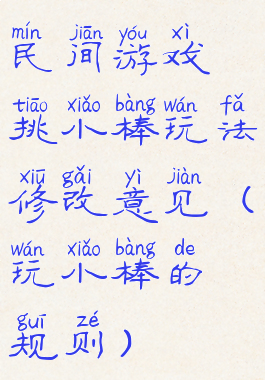 mín jiān yóu xì
民间游戏
tiāo xiǎo bàng wán fǎ
挑小棒玩法
xiū gǎi yì jiàn
修改意见（
wán xiǎo bàng de
玩小棒的
guī zé
规则）